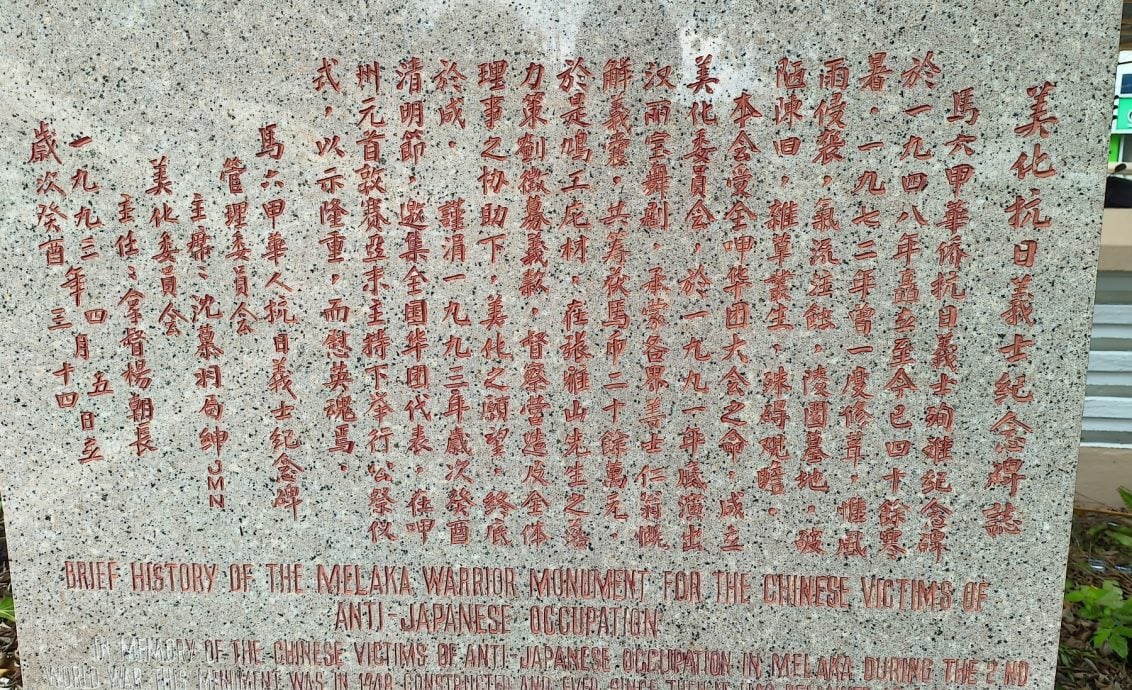 美化抗日義士纪念碑誌
馬六甲華侨抗日義士殉难纪念碑
於一九四八年矗立至今已四十餘寒
暑。一九七二年曾一度修葺,惟風
雨侵袭,氣流注蝕,陵園墓地,破
陋陳旧,雜草叢生,殊碍观瞻。
本会受全呷华团大会之命,成立
美化委員会,於一九九一年底演出
汉丽宝舞剧,承蒙各界善士仁翁慨
解義囊,共筹获馬币二十餘萬元。
於是鳩工庀材,在張雅山先生之落
力策劃徵募義款,督察营造及全体
理事之协助下,美化之願望,終底
於成。謹涓一九九三年歲次癸酉
清明節,邀集全国华团代表,在呷
州元首敦赛亞末主持下举行公祭仪
式,以示隆重,而慰英魂焉。
馬六甲華人抗日義士纪念碑
管理委員会
主席:沈慕羽局紳JMN
美化委員会
主任:拿督楊朝長
一九九三年四月五日立
歲次癸酉三十四
BRIEF HISTORY OF THE MELAKA WARRIOR MONUMENT FOR THE CHINESE VICTIMS OF
ANTI-JAPANESE OCCUPATION
IN MEMORY OF THE CHINESE VICTIMS OF ANTI-JAPANESE OCCUPATION IN MELAKA DURING THE 2ND
WORLD WAR THIS MONUMENT WAS IN 1948 CONSTRUCTED AND EVER SINCE